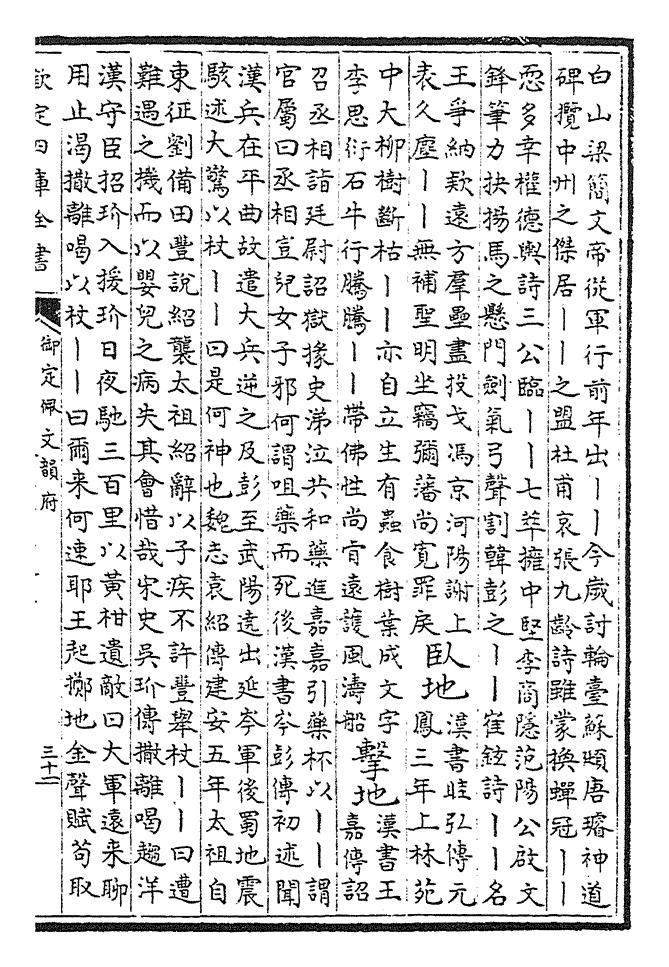 白山梁簡文帝從軍行前年出｜｜今歲討輪臺蘇頲唐璿神道
碑攬中州之傑居｜｜之盟杜甫哀張九齡詩雖蒙換蟬冠｜｜
恧多幸權德輿詩三公臨｜｜七萃擁中堅李商隱范陽公啟文
鋒筆力抉揚馬之懸門劍氣弓聲割韓彭之｜｜崔鉉詩｜｜名
王爭納欵遠方羣壘盡投戈馮京河陽謝上
表久塵｜｜無補聖明坐竊彌藩尚寛罪戾
臥地
漢書眭弘傳元
鳳三年上林苑
中大柳樹斷枯｜｜亦自立生有蟲食樹葉成文字
李思衍石牛行騰騰｜｜帶佛性尚肯遠護風濤船
擊地
漢書王
嘉傳詔
召丞相詣廷尉詔獄掾史涕泣共和藥進嘉嘉引藥杯以｜｜謂
官屬曰丞相豈兒女子邪何謂咀藥而死後漢書岑彭傳初述聞
漢兵在平曲故遣大兵逆之及彭至武陽遶出延岑軍後蜀地震
駭述大驚以杖｜｜曰是何神也魏志袁紹傳建安五年太祖自
東征劉備田豐說紹襲太祖紹辭以子疾不許豐舉杖｜｜曰遭
難遇之機而以嬰兒之病失其會惜哉宋史吳玠傳撒離喝趨洋
漢守臣招玠入援玠日夜馳三百里以黃柑遺敵曰大軍遠来聊
用止渴撒離喝以杖｜｜曰爾来何速耶王起擲地金聲賦苟取
欽定四庫全書
御定佩文韻府
三十二